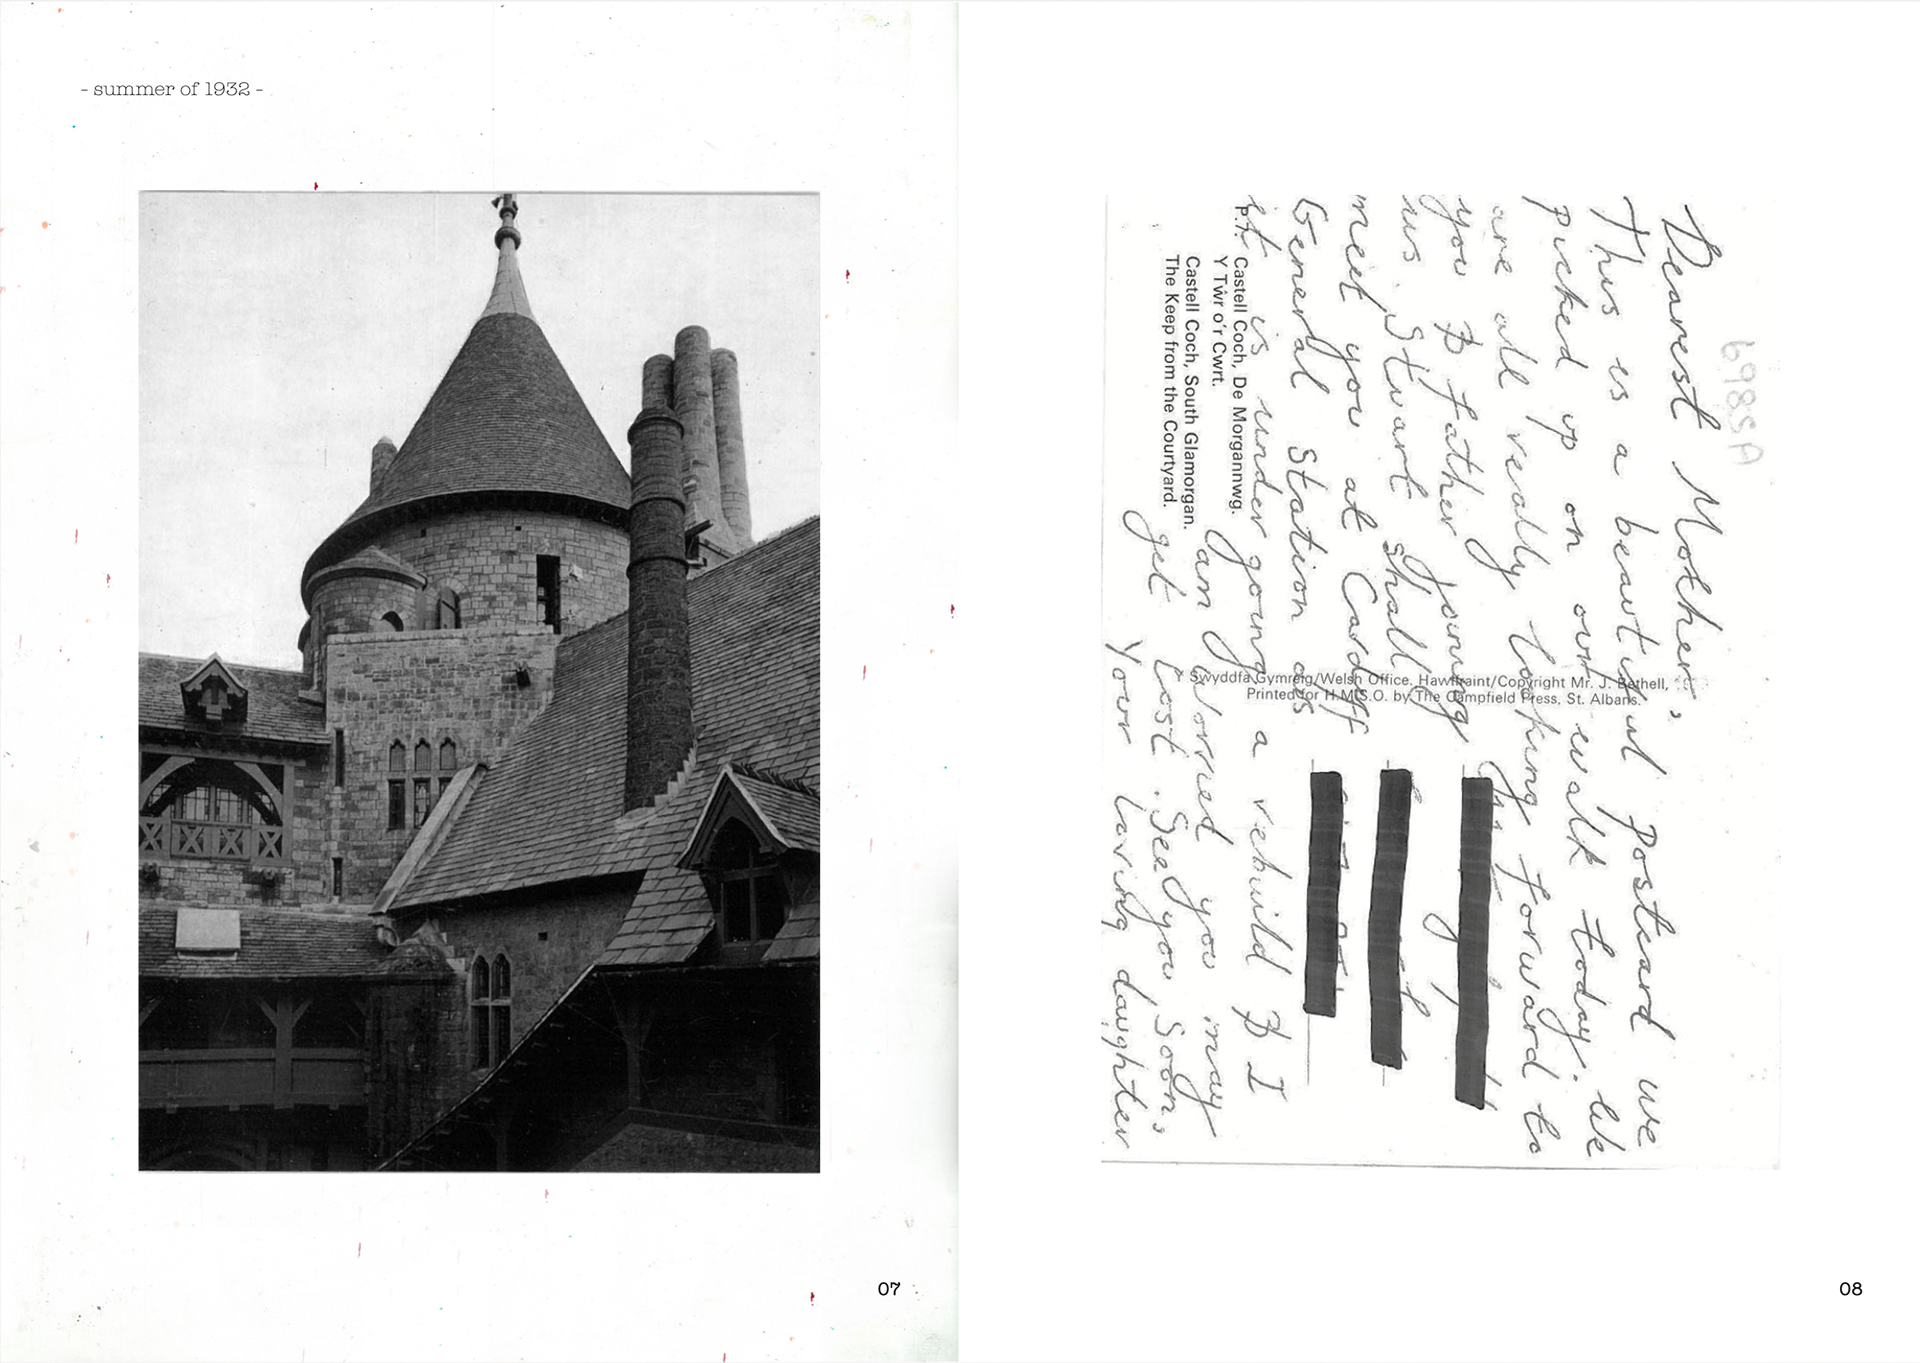 - summer of 1932 -
07
Dearest Mother,
This is a beautiful postcard we
picked up on our walk today. We
are all really looking forward to
you & Father joining
us, Stuart shall
meet you at Cardiff
General Station as
it is under going a rebuild & I
am worried you may
get lost. See you soon,
Your loving daughter
Castell Coch, De Morgannwg.
Y Tŵr o'r Cwrt.
Castell Coch, South Glamorgan.
The Keep from the Courtyard.
Y Swyddfa Gymreig/Welsh Office. Hawlfraint/Copyright Mr. J. Bethell,
Printed for H.M.S.O. by The Campfield Press, St. Albans.
08